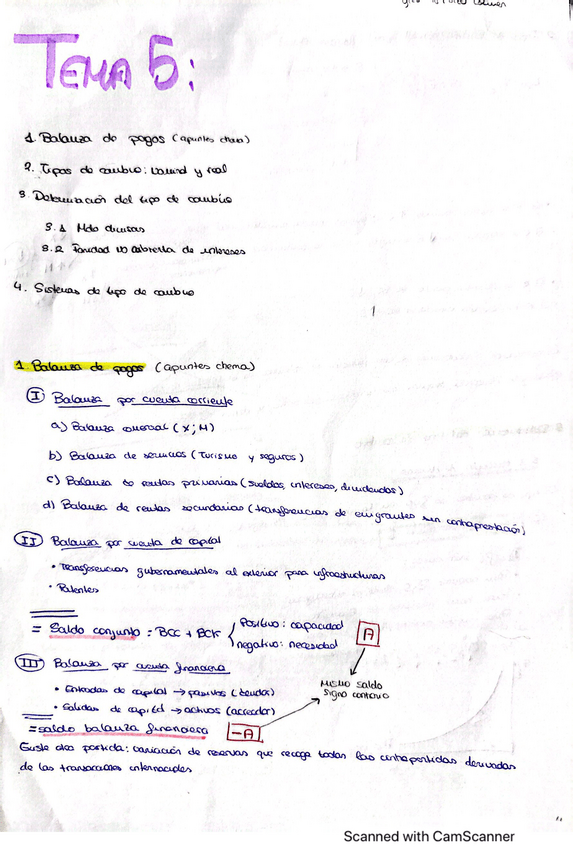 TEMA 5:
1. Balanza de pagos (apuntes chema)
2. Tipos de cambio: nominal y real
3. Determinación del tipo de cambio
3.1 Mdo divisas
3.2 Paridad no cubierta de intereses
4. Sistemas de tipo de cambio
1. Balanza de pagos (apuntes chema)
I Balanza por cuenta corriente
a) Balanza comercial (X; M)
b) Balanza de servicios (Turismo y seguros)
c) Balanza de rentas primarias (sueldos, intereses, dividendos)
d) Balanza de rentas secundarias (transferencias de emigrantes sin contraprestación)
II Balanza por cuenta de capital
• Transferencias gubernamentales al exterior para infraestructuras
• Patentes
= Saldo conjunto = BCC + BCK { Positivo: capacidad
negativo: necesidad
A
III Balanza por cuenta financiera
Mismo saldo
signo contrario
• Entradas de capital → pasivos (deudor)
• Salidas de capital → activos (acreedor)
= saldo balanza financiera -A
Existe otra partida: variación de reservas que recoge todas las contrapartidas derivadas
de las transacciones internacionales
Scanned with CamScanner